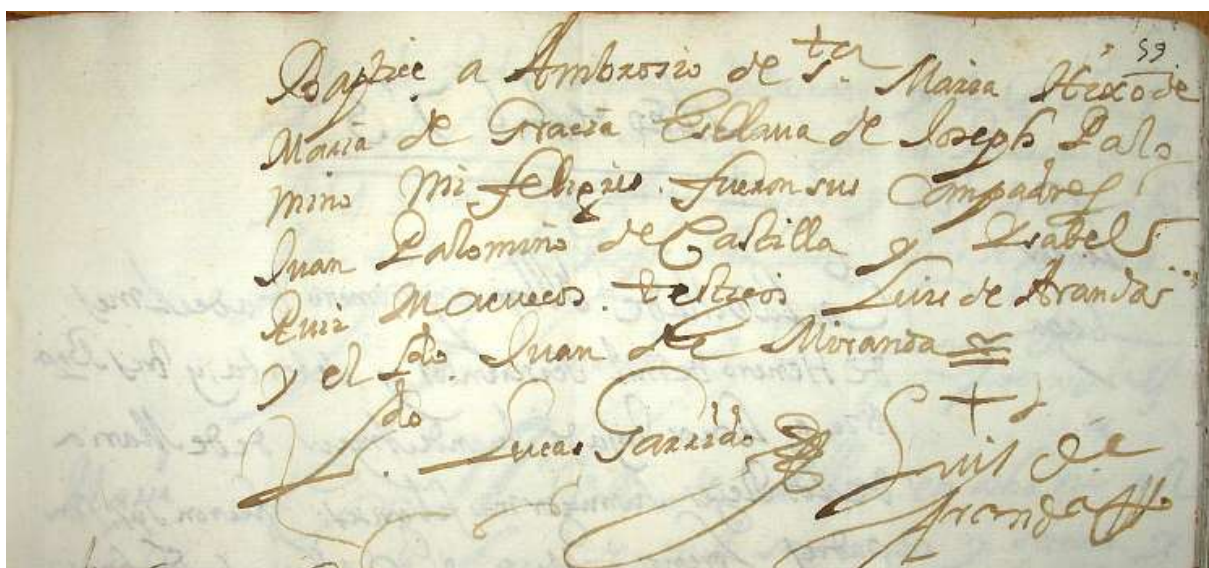 59
Baptice a Ambrosio de S.ta Maria Hixo de
Maria de Gracia Esclava de Joseph Palo
mino Mi feligres. fueron sus Compadres
Juan Palomino de Castilla y Ysabel
Ruiz Macuecos. testigos Luis de Aranda
y el L.do Juan de Miranda
L.do Lucas Garrido
Luis de
Aranda